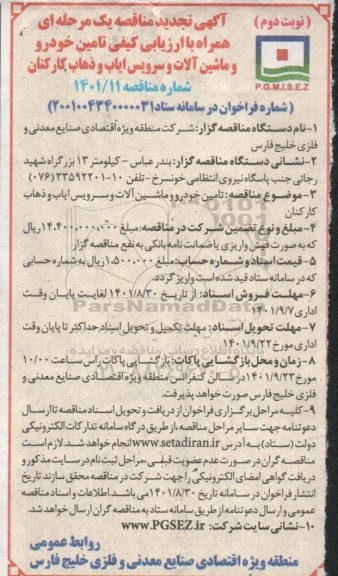 (نوبت دوم)
آگهی تجدید مناقصه یک مرحله ای
همراه با ارزیابی کیفی تامین خودرو
و ماشین آلات و سرویس ایاب و ذهاب کارکنان
P.G.M.I.S.E.Z
شماره مناقصه ۱۴۰۱/۱۱
(شماره فراخوان در سامانه ستاد ۲۰۰۱۰۰۴۳۴۰۰۰۰۰۳۱)
۱-نام دستگاه مناقصه گزار: شرکت منطقه ویژه اقتصادی صنایع معدنی و
فلزی خلیج فارس
۲-نشانی دستگاه مناقصه گزار: بندر عباس - کیلومتر ۱۳ بزرگراه شهید
رجائی جنب پاسگاه نیروی انتظامی خونسرخ - تلفن ۱۰-۳۳۵۹۲۲۰۱ (۰۷۶)
۳-موضوع مناقصه: تامین خودرو و ماشین آلات و سرویس ایاب و ذهاب
کارکنان
۴-مبلغ و نوع تضمین شرکت در مناقصه: مبلغ ۱۴،۴۰۰،۰۰۰،۰۰۰ ریال
که به صورت فیش واریزی یا ضمانت نامه بانکی به نفع مناقصه گزار
۵- قیمت اسناد و شماره حساب: مبلغ ۱،۵۰۰،۰۰۰ ریال به شماره حسابی
که در سامانه ستاد قید شده است واریز گردد.
۶-مهلت فروش اسناد: از تاریخ ۱۴۰۱/۸/۳۰ لغایت پایان وقت
اداری ۱۴۰۱/۹/۷
ParsNamadData
۷-مهلت تحویل اسناد: مهلت تکمیل و تحویل اسناد حداکثر تا پایان وقت
اداری مورخ ۱۴۰۱/۹/۲۲
۸-زمان و محل بازگشایی پاکات: بازگشایی پاکات راس ساعت ۱۰/۰۰
مورخ ۱۴۰۱/۹/۲۳ در سالن کنفرانس منطقه ویژه اقتصادی صنایع معدنی و
فلزی خلیج فارس صورت خواهد پذیرفت.
۹-کلیه مراحل برگزاری فراخوان از دریافت و تحویل اسناد مناقصه تا ارسال
دعوتنامه جهت سایر مراحل مناقصه، از طریق درگاه سامانه تدارکات الکترونیکی
دولت (ستاد) به آدرس www.setadiran.ir انجام خواهد شد. لازم است
مناقصه گران در صورت عدم عضویت قبلی، مراحل ثبت نام در سایت مذکور و
دریافت گواهی امضای الکترونیکی را جهت شرکت در مناقصه محقق سازند تاریخ
انتشار فراخوان در سامانه تاریخ ۱۴۰۱/۸/۳۰ می باشد. اطلاعات و اسناد مناقصه
عمومی و ارسال دعوتنامه از طریق سامانه ستاد به مناقصه گران ارسال خواهد شد.
۱۰-نشانی سایت شرکت: www.PGSEZ.ir
روابط عمومی
منطقه ویژه اقتصادی صنایع معدنی و فلزی خلیج فارس